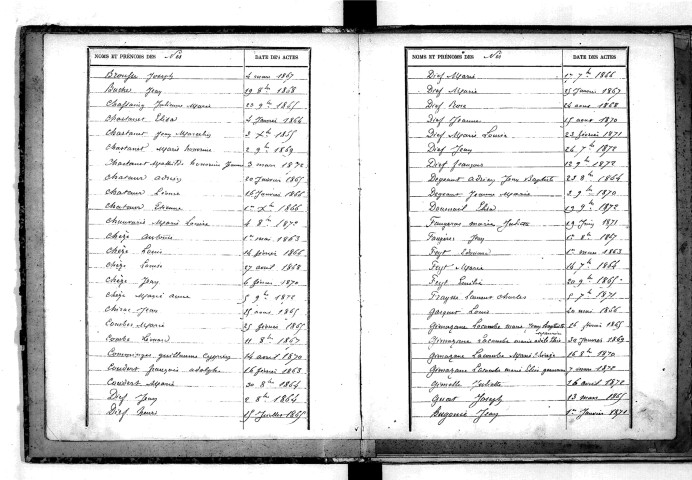 NOMS ET PRÉNOMS DES Nés DATE DES ACTES
Brousse Joseph 4 mars 1867
Buche Jean 19 8bre 1868
Chassaing Julienne Marie 22 9bre 1865
Chastanet Elisa 4 Janvier 1866
Chastanet Jean Marcelin 3 Xbre 1865
Chastanet Marie honorine 2 9bre 1869
Chastanet honorine Jeanne 3 mars 1872
Chatour adrien 20 Janvier 1865
Chatour Léonie 16 Janvier 1866
Chatour Etienne 1er Xbre 1866
Marie Louise 4 8bre 1872
Chèze Antoine 1er mai 1863
Chèze Louis 14 février 1866
Chèze Louise 27 avril 1868
Chèze Jean 6 février 1870
Chèze Marie anne 5 9bre 1872
Jean 25 août 1865
Combes Marie 25 février 1865
Combe Léonard 11 8bre 1867
guillaume 14 avril 1870
Coudert françois adolphe 16 février 1863
Coudert Marie 20 8bre 1864
Dief Jean 2 8bre 1864
Dief 15 Juillet 1865
NOMS ET PRÉNOMS DES Nés DATE DES ACTES
Dief Marie 1er 7bre 1866
Dief Marie 25 Janvier 1867
Dief Rose 26 août 1868
Dief Jeanne 15 août 1870
Dief Marie Louise 23 février 1871
Dief Jean 26 7bre 1872
Dief françois 12 9bre 1872
Degeant adrien Jean Baptiste 23 8bre 1864
Degeant Jeanne Marie 2 9bre 1870
Elisa 19 9bre 1872
Marie 19 Juin 1871
Faugères Jean 1er 8bre 1867
Feyt Edouard 1er mars 1863
Feyt Marie 14 7bre 1866
Feyt Emilie 20 9bre 1865
Laurent Charles 5 7bre 1871
Gasquet Louis 20 mai 1856
Gimazane Lacombe marie Jean Baptiste 26 février 1865
Gimazane Lacombe marie 20 Janvier 1869
Gimazane Lacombe Marie 16 8bre 1870
Gimazane Lacombe marie 7 mars 1872
Gimelle Juliette 26 avril 1872
Guat Joseph 13 mars 1865
Hugonie Jean 1er Janvier 1871